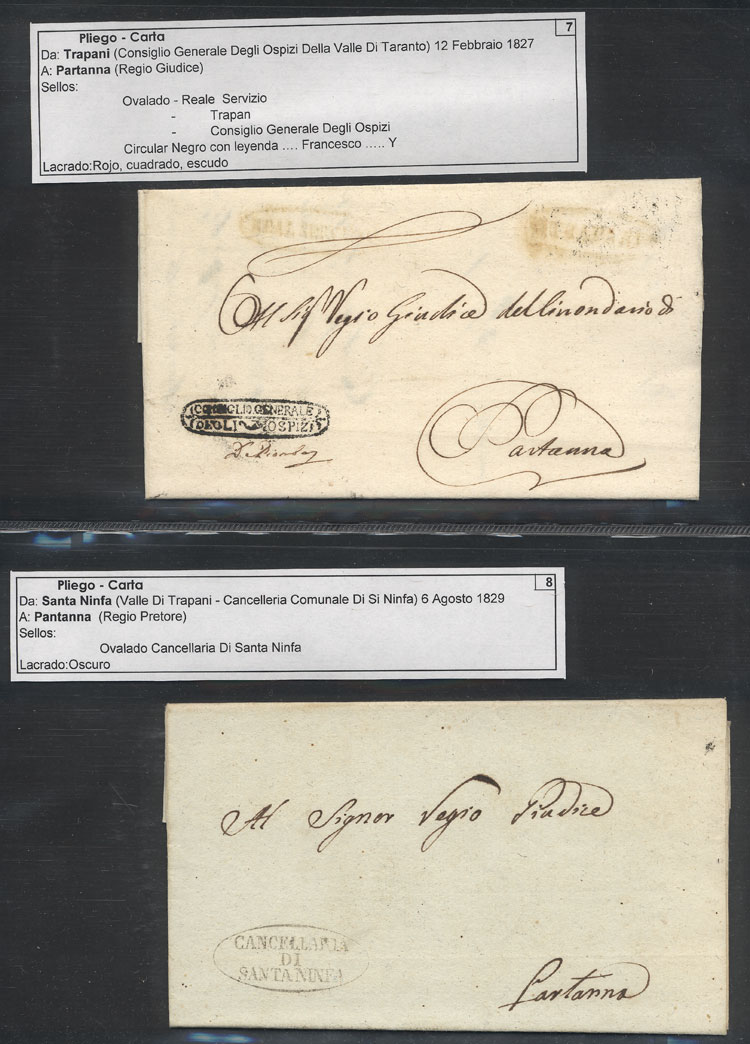 Pliego - Carta
7
Da: Trapani (Consiglio Generale Degli Ospizi Della Valle Di Taranto) 12 Febbraio 1827
A: Partanna (Regio Giudice)
Sellos:
Ovalado - Reale Servizio
- Trapan
- Consiglio Generale Degli Ospizi
Circular Negro con leyenda .... Francesco ..... Y
Lacrado:Rojo, cuadrado, escudo
Al Sig.r Regio Giudice del Circondario di
CONSIGLIO GENERALE
DEGLI OSPIZI
Partanna
Pliego - Carta
8
Da: Santa Ninfa (Valle Di Trapani - Cancelleria Comunale Di Si Ninfa) 6 Agosto 1829
A: Pantanna (Regio Pretore)
Sellos:
Ovalado Cancellaria Di Santa Ninfa
Lacrado:Oscuro
Al Signor Regio Giudice
CANCELLARIA
DI
SANTA NINFA
Partanna